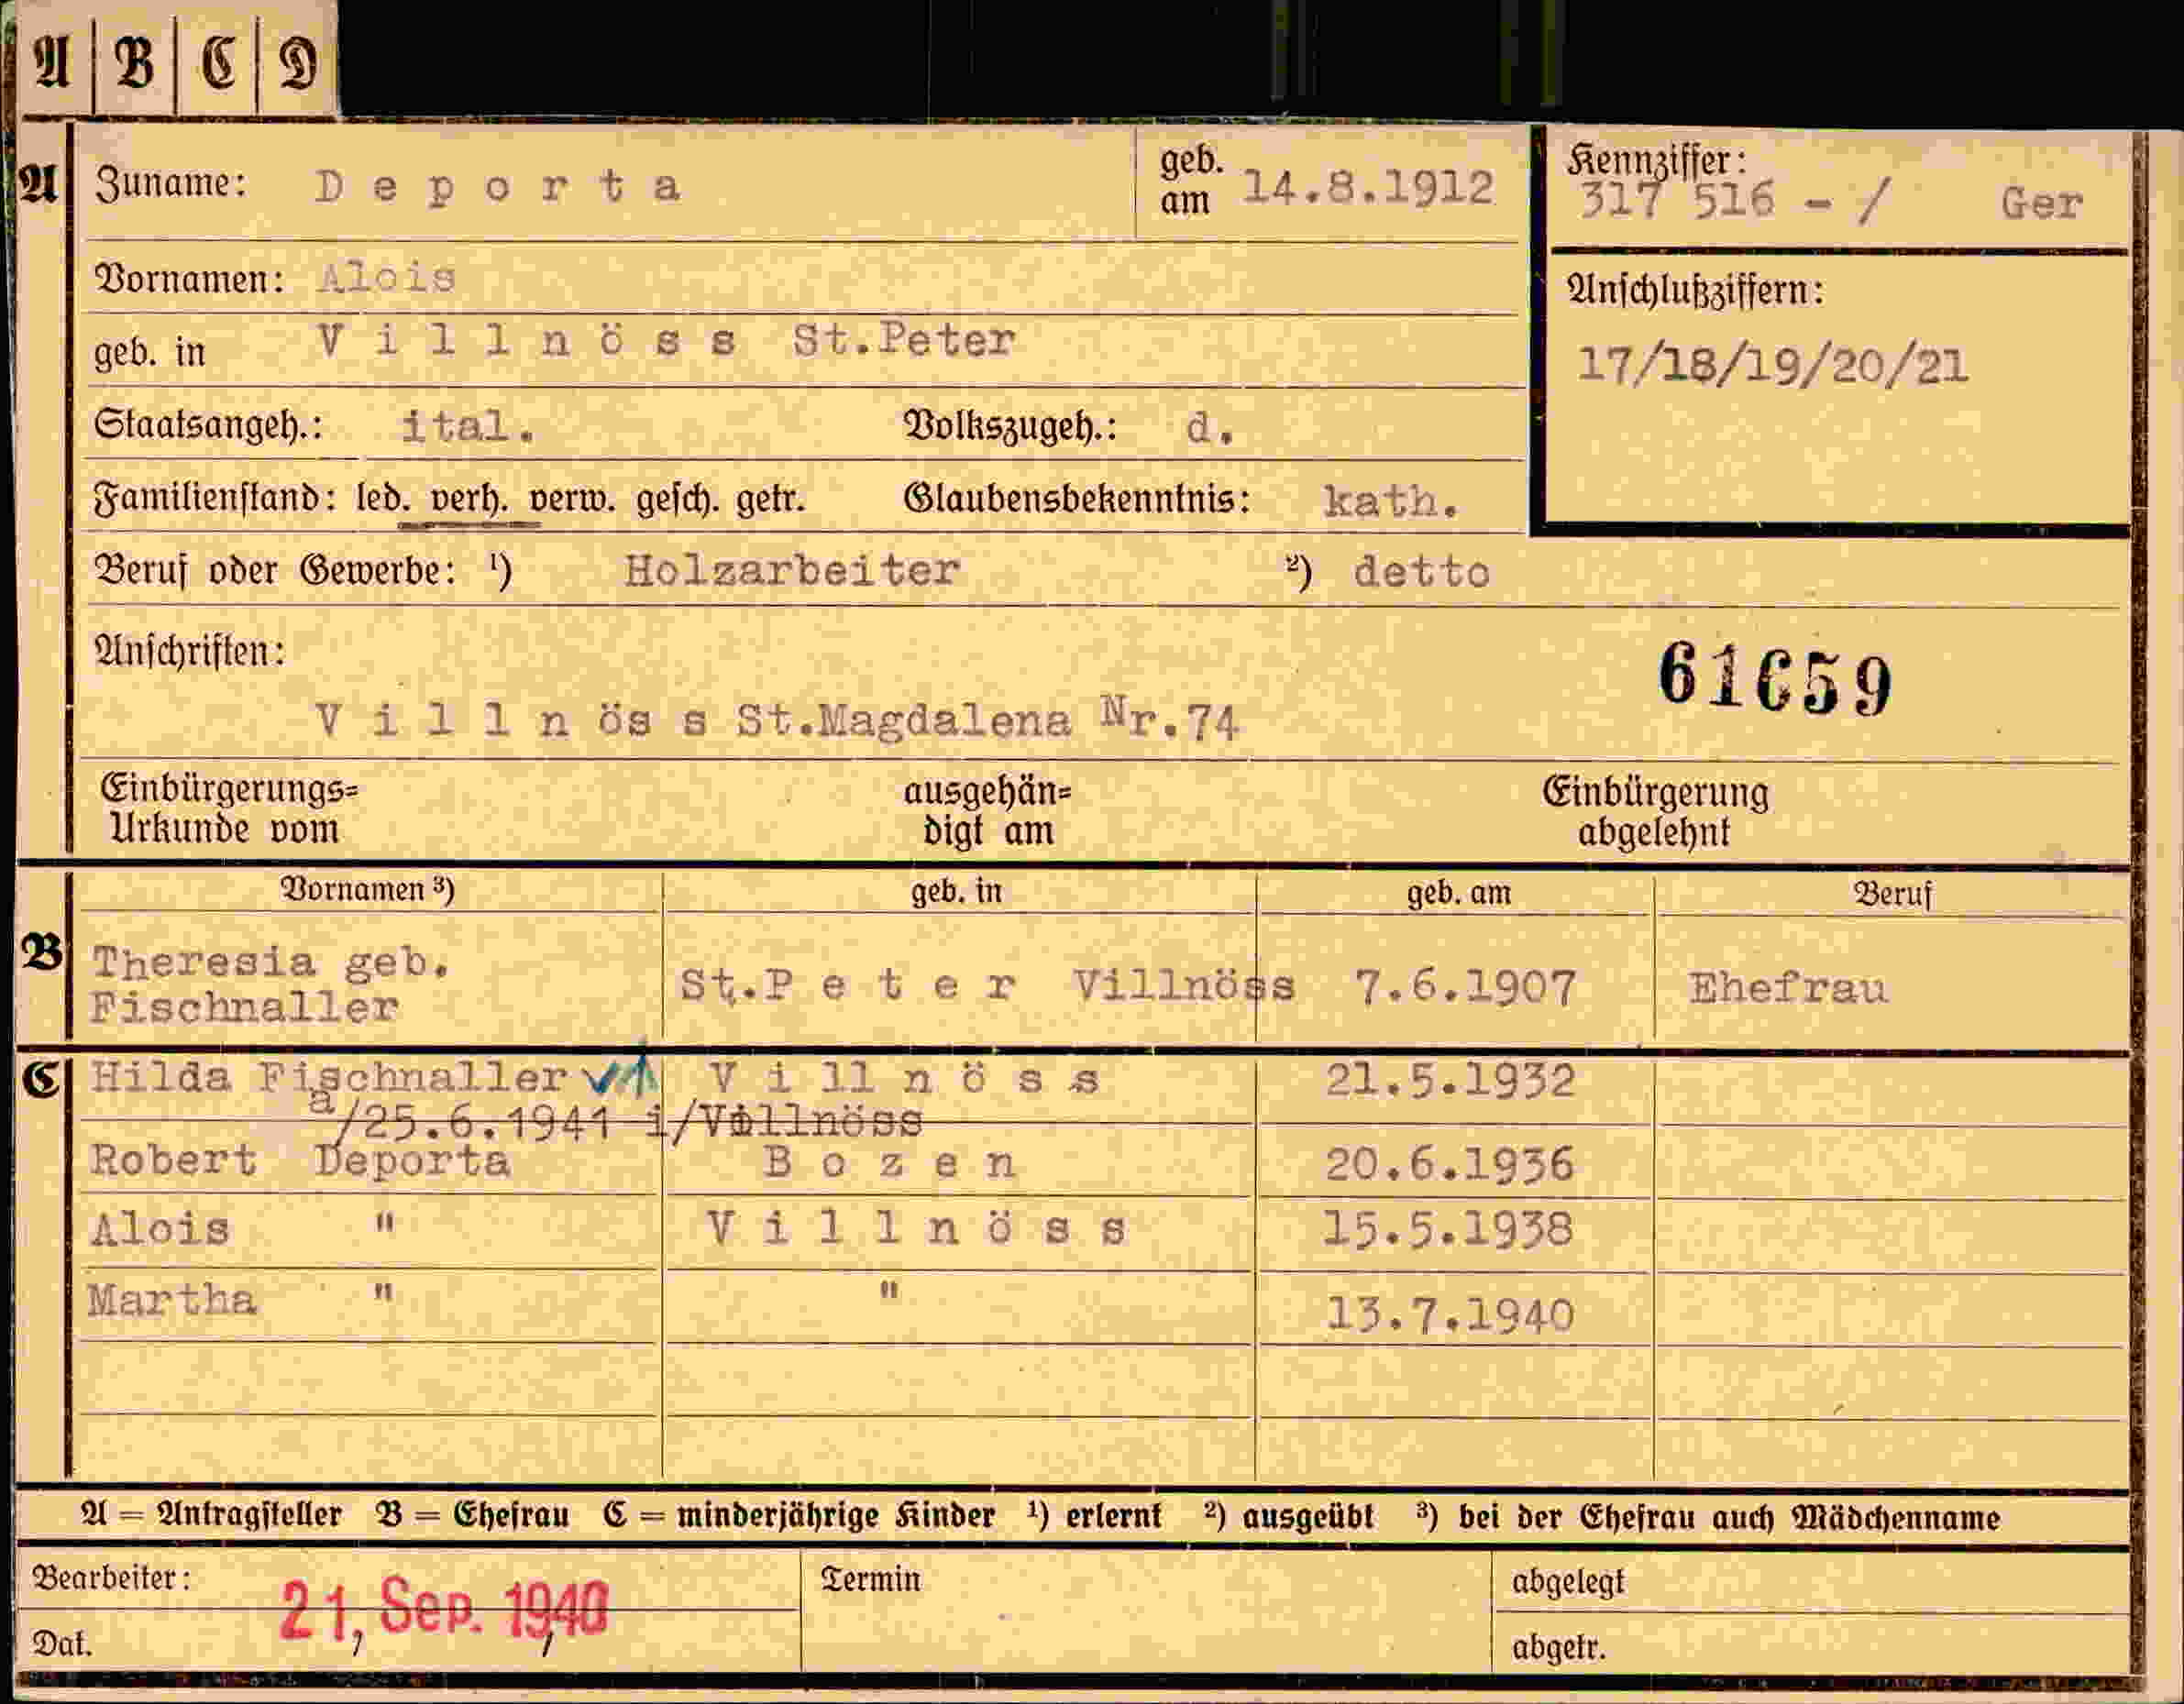 A B C D
A Zuname: Deporta geb. am 14.8.1912 Kennziffer: 317 516 - / Ger
Vornamen: Alois
Anschlußziffern:
geb. in Villnöss St.Peter
17/18/19/20/21
Staatsangeh.: ital. Volkszugeh.: d.
Familienstand: led. verh. verw. gesch. getr. Glaubensbekenntnis: kath.
Beruf oder Gewerbe: ¹) Holzarbeiter ²) detto
Anschriften:
61659
Villnöss St.Magdalena Nr.74
Einbürgerungs= ausgehän= Einbürgerung
Urkunde vom digt am abgelehnt
Vornamen ³) geb. in geb. am Beruf
B Theresia geb. Fischnaller St.Peter Villnöss 7.6.1907 Ehefrau
C Hilda Fischnaller Villnöss 21.5.1932
a/25.6.1941 i/Villnöss
Robert Deporta Bozen 20.6.1936
Alois " Villnöss 15.5.1938
Martha " " 13.7.1940
A = Antragsteller B = Ehefrau C = minderjährige Kinder ¹) erlernt ²) ausgeübt ³) bei der Ehefrau auch Mädchenname
Bearbeiter: Termin abgelegt
21. Sep. 1940
Dat. abgetr.